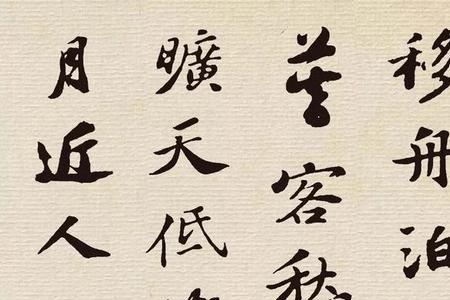 移舟泊
暮客愁
曠天低
月近人